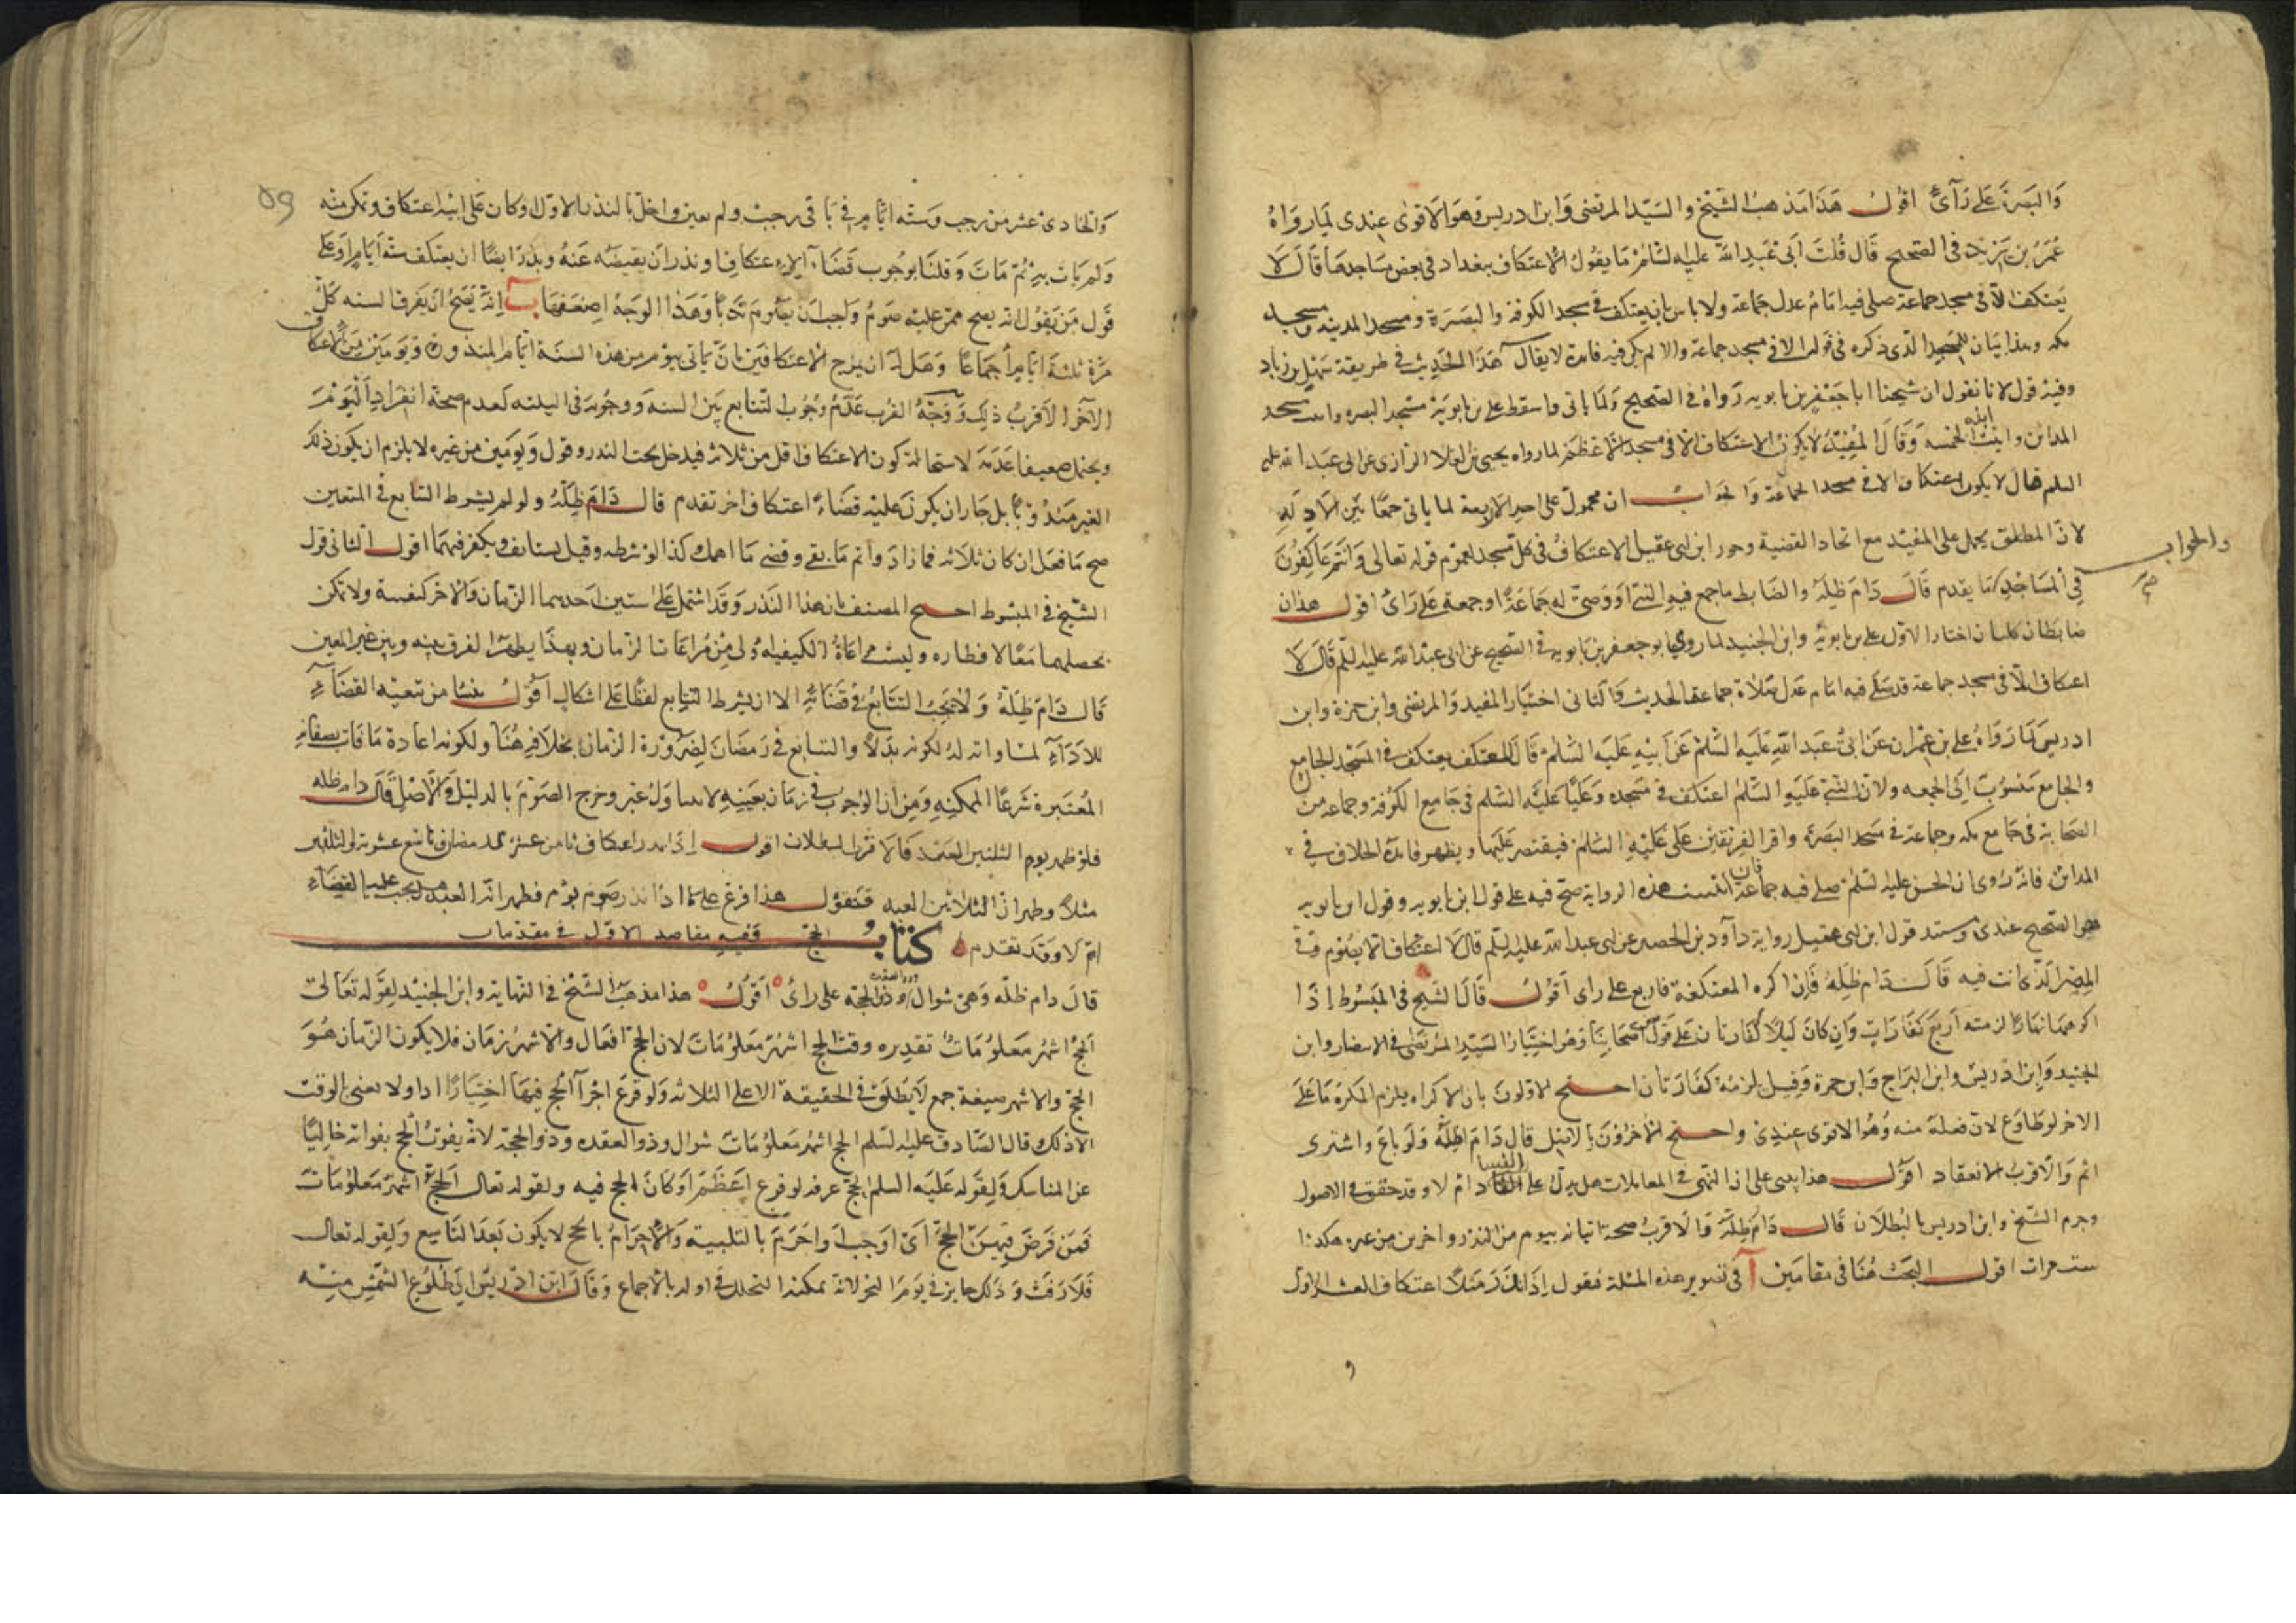 والبصرة على رأى اقول هذا مذهب الشيخ والسيد المرتضى وابن ادريس وهو الاقوى عندى لما رواه
عمر بن يزيد فى الصحيح قال قلت لابى عبد الله عليه السلام ما يقول فى الاعتكاف ببغداد فى بعض مساجدها قال لا
يعتكف الا فى مسجد جماعة صلى فيه امام عدل جماعة ولا باس بان يعتكف فى مسجد الكوفة والبصرة ومسجد المدينة ومسجد
مكة وهذا بيان للمسجد الذى ذكره فى قوله الا فى مسجد جماعة والا لم يكن فيه فائدة لا يقال هذا الحديث فى طريقه سهل بن زياد
وفيه قول لانا نقول ان شيخنا ابا جعفر بن بابويه رواه فى الصحيح ولما ياتى واسقط على بن بابويه مسجد البصرة واثبت مسجد
المدائن واثبت ابنه الخمسة وقال المفيد لا يكون الاعتكاف الا فى مسجد الاعظم لما رواه يحيى بن العلا الرازى عن ابى عبد الله عليه
السلم قال لا يكون اعتكاف الا فى مسجد الجماعة والجواب انه محمول على احد الاربعة لما ياتى جمعا بين الادلة
لان المطلق يحمل على المقيد مع اتحاد القضية وجوز ابن ابى عقيل الاعتكاف فى كل مسجد لعموم قوله تعالى وانتم عاكفون
والجواب
فى المساجد كما يقدم قال دام ظله والضابط ما جمع فيه النبى او وصى له جماعة او جمعة على راى اقول هذان
ضابطان كليان اختار الاول على بن بابويه وابن الجنيد لما روى ابو جعفر بن بابويه فى الصحيح عن ابى عبد الله عليه السلم قال لا
اعتكاف الا فى مسجد جماعة قد صلى فيه امام عدل صلاة جماعة الحديث والثانى اختيار المفيد والمرتضى وابن حمزة وابن
ادريس لما رواه على بن عمران عن ابى عبد الله عليه السلم عن ابيه عليه السلم قال المعتكف يعتكف فى المسجد الجامع
والجامع منسوب الى الجمعة ولان النبى عليه السلم اعتكف فى مسجده وعليا عليه السلم فى جامع الكوفة وجماعة من
الصحابة فى جامع مكة وجماعة فى مسجد البصرة واقر الفريقين على عليه السلم فيقتصر عليها ويظهر فائدة الخلاف فى
المدائن فانه روى ان الحسن عليه السلم صلى فيه جماعة فان اثبتت هذه الرواية صح فيه على قول ابن بابويه وقول ابن بابويه
هو الصحيح عندى ومستند قول ابن ابى عقيل رواية داود بن الحصين عن ابى عبد الله عليه السلم قال لا اعتكاف الا بصوم وفى
المصر الذى انت فيه قال دام ظله فان اكره المعتكفة فاربع على راى اقول قال الشيخ فى المبسوط اذا
اكرهها نهارا لزمته اربع كفارات وان كان ليلا كفارتان على قول بعض اصحابنا وهو اختيار السيد المرتضى فى الانتصار وابن
الجنيد وابن ادريس وابن البراج وابن حمزة وقيل لزمته كفارتان احتج الاولون بان الاكراه يلزم المكره ما على
الاخر لو طاوع لان فعله منه وهو الاقوى عندى واحتج الاخرون بالاصل قال دام ظله ولو باع واشترى
اثم والاقرب الانعقاد اقول هذا يبنى على ان النهى فى المعاملات هل يدل على الفساد ام لا وقد حقق فى الاصول
وجزم الشيخ وابن ادريس بالبطلان قال دام ظله والاقرب صحة اتيانه بيوم من النذر واخرين من غيره هكذا
ست مرات اقول البحث هنا فى مقامين آ فى تصوير هذه المسئلة فنقول اذا نذر مثلا اعتكاف العشر الاول
٥٩
والحادى عشر من رجب وستة ايام فى باقى رجب ولم يعين واخل بالنذر الاول او كان على ابيه اعتكاف وتمكن منه
ولم يات به ثم مات وقلنا بوجوب قضاء الاعتكاف او نذر ان يقضيه عنه ونذر ايضا ان يعتكف ستة ايام او على
قول من يقول انه يصح ممن عليه صوم واجب ان يصوم ندبا وهذا الوجه اضعفها ب انه يصح ان يفرق الستة كل
مرة ثلثة ايام اجماعا وهل له ان يمزج الاعتكافين بان ياتى بيوم من هذه الستة ايام المنذورة ويومين من الاعتكاف
الاخر الاقرب ذلك ووجه القرب عدم وجوب التتابع بين الستة ووجوبه فى الثلثة لعدم صحة انفراد اليوم
ويحتمل ضعيفا عدمه لاستحالة كون الاعتكاف اقل من ثلاثة فيدخل تحت النذر وقول ويومين من غيره لا يلزم ان يكون ذلك
الغير مندوبا بل جاز ان يكون عليه قضاء اعتكاف اخر تقدم قال دام ظله ولو لم يشرط التتابع فى المتعين
صح ما فعل ان كان ثلاثة فما زاد واتم ما بقى وقضى ما اهمل كذا لو شرطه وقيل يستانف ويكفر فيهما اقول الثانى قول
الشيخ فى المبسوط احتج المصنف بان هذا النذر وقد اشتمل على شيئين احدهما الزمان والاخر كيفية ولا تمكن
تحصيلهما معا لافطاره وليست مراعاة الكيفية اولى من مراعاة الزمان وبهذا يظهر الفرق بينه وبين غير المعين
قال دام ظله ولا يجب التتابع فى قضائه الا ان يشرط التتابع لفظا على اشكال اقول ينشا من تبعية القضاء
للاداء لمساواته له لكونه بدلا والتتابع فى رمضان لضرورة الزمان بخلاف هنا ولكونه اعادة ما فات بصفاته
المعتبرة شرعا الممكنة ومن ان الوجوب فى زمان بعينه لا يتناول غيره خرج الصوم بالدليل والاصل قال دام ظله
فلو ظهر يوم الثلثين العيد فالاقرب البطلان اقول اذا نذر اعتكاف ثامن عشرى رمضان وتاسع عشريه والثلثين
مثلا وظهر ان الثلاثين العيد فنقول هذا فرع على ما اذا نذر صوم يوم فظهر انه العيد هل يجب عليه القضاء
ام لا وقد تقدم كتاب الحج وفيه مقاصد الاول فى مقدمات
قال دام ظله وهى شوال وذو القعدة وذو الحجة على راى اقول هذا مذهب الشيخ فى النهاية وابن الجنيد لقوله تعالى
الحج اشهر معلومات تقديره وقت الحج اشهر معلومات لان الحج افعال والاشهر زمان فلا يكون الزمان هو
الحج والاشهر صيغة جمع لا يطلق فى الحقيقة الا على الثلاثة ولوقوع اجزا الحج فيها اختيارا ادا ولا نعنى بالوقت
الا ذلك قال الصادق عليه السلم الحج اشهر معلومات شوال وذو القعدة وذو الحجة لانه يفوت الحج بفواته خاليا
عن المناسك ولقوله عليه السلم الحج عرفة لوقوع اعظم اركان الحج فيه ولقوله تعالى الحج اشهر معلومات
فمن فرض فيهن الحج اى اوجب واحرم بالتلبية والاحرام بالحج لا يكون بعد التاسع ولقوله تعالى
فلا رفث وذلك جايز فى يوم النحر لانه يمكنه التحلل فى اوله بالاجماع وقال ابن ادريس الى طلوع الشمس منه